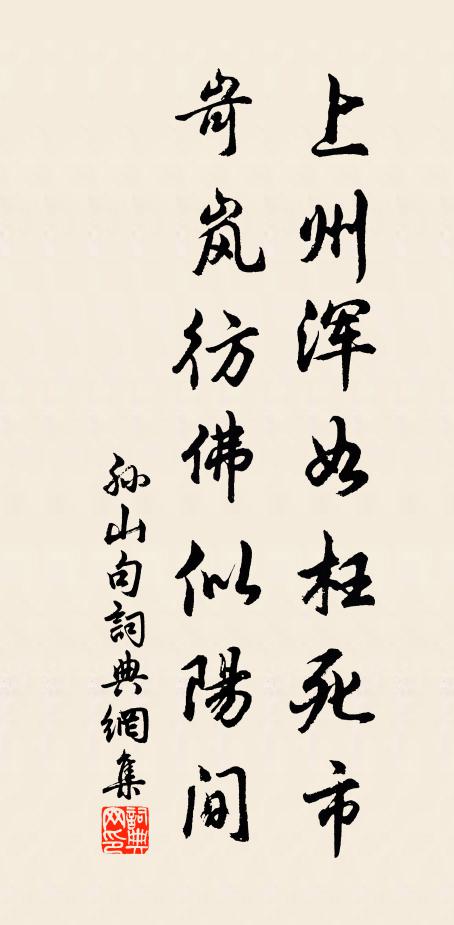 上州浑如枉死市
岢岚彷佛似陽间
孙山句詞典網集
詞典网印